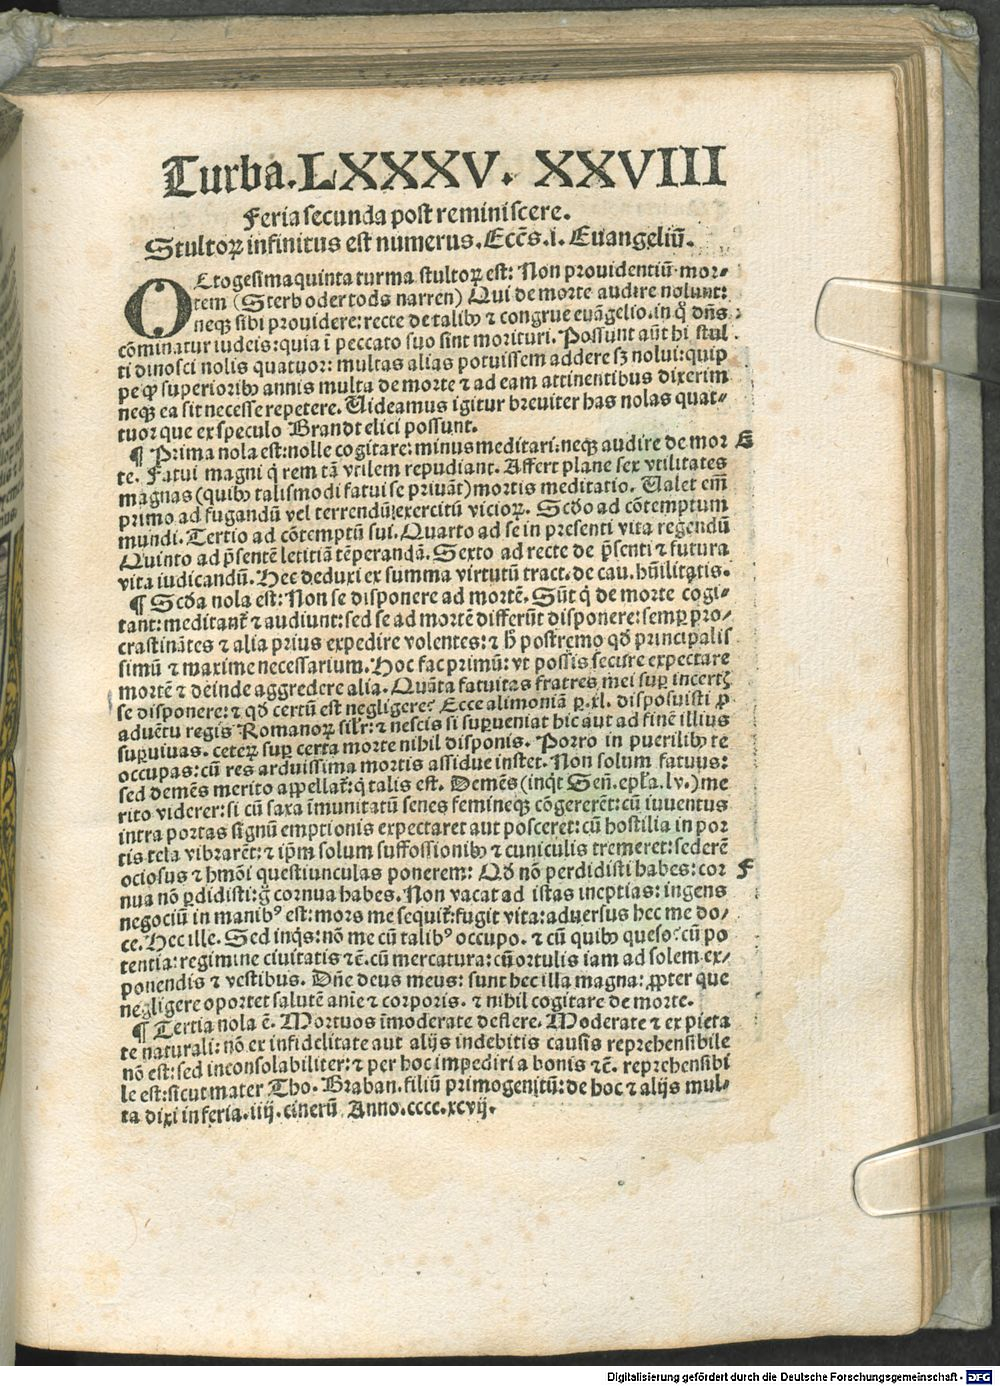 Turba.LXXXV. XXVIII
Feria secunda post reminiscere.
Stultoꝝ infinitus est numerus. Ecc̄s. i. Euangeliū.
OCtogesimaquinta turma stultoꝝ est: Non prouidentiū mor⸗
tem (Sterb oder tods narren) Qui de morte audire nolunt:
neqꝫ sibi prouidere: recte de talibꝰ ⁊ congrue euāgelio. in q̊ dn̄s
cōminatur iudeis: quia ī peccato suo sint morituri. Possunt aūt hi stul
ti dinosci nolis quatuor: multas alias potuissem addere sꝫ nolui: quip
pe qꝫ superioribꝰ annis multa de morte ⁊ ad eam attinentibus dixerim
neqꝫ ea sit necesse repetere. Uideamus igitur breuiter has nolas quat⸗
tuor que ex speculo Brandt elici possunt.
¶ Prima nola est: nolle cogitare: minus meditari: neqꝫ audire de mor E
te. Fatui magni q̇ rem tā vtilem repudiant. Affert plane sex vtilitates
magnas (quibꝰ talismodi fatui se priuāt) mortis meditatio. Ualet em̄
primo ad fugandū vel terrendū exercitū vicioꝝ. Scḋo ad cōtemptum
mundi. Tertio ad cōtemptū sui. Quarto ad se in presenti vita regendū
Quinto ad p̄sentē letitiā tēperandā. Sexto ad recte de p̄senti ⁊ futura
vita iudicandū. Hec deduxi ex summa virtutū tract. de cau. hūilitatis.
¶ Scḋa nola est: Non se disponere ad mortē. Sūt q̇ de morte cogi⸗
tant: meditant̄ ⁊ audiunt: sed se ad mortē differūt disponere: semꝑ pro⸗
crastinātes ⁊ alia prius expedire volentes: ⁊ h̄ postremo qḋ principalis
simū ⁊ maxime necessarium. Hoc fac primū: vt possis secure expectare
mortē ⁊ deinde aggredere alia. Quāta fatuitas fratres mei suꝑ incertꝭ
se disponere: ⁊ qḋ certū est negligere? Ecce alimoniā ꝑ .xl. disposuisti ꝓ
aduētu regis Romanoꝝ sil̄r: ⁊ nescis si suꝑueniat hic aut ad finē illius
suꝑuiuas. ceterꝝ suꝑ certa morte nihil disponis. Porro in puerilibꝰ te
occupas: cū res arduissima mortis assidue instet. Non solum fatuus:
sed demēs merito appellat̄: q̇ talis est. Demēs (inq̇t Sen̄. epl̄a. lv.) me
rito viderer: si cū saxa ī munitatū senes femineqꝫ cōgererēt: cū iuuentus
intra portas signū emptionis expectaret aut posceret: cū hostilia in por
tis tela vibrarēt: ⁊ ip̄m solum suffossionibꝰ ⁊ cuniculis tremeret: sederē
ociosus ⁊ hmōi questiunculas ponerem: Qḋ nō perdidisti habes: cor F
nua nō ꝑdidisti: g̊ cornua habes. Non vacat ad istas ineptias: ingens
negociū in manibꝰ est: mors me sequit̄: fugit vita: aduersus hec me do⸗
ce. Hec ille. Sed inq̇s: nō me cū talibꝰ occupo. ⁊ cū quibꝰ queso? cū po
tentia: regimine ciuitatis ⁊c̄. cū mercatura: cū ortulis iam ad solem ex⸗
ponendis ⁊ vestibus. Dn̄e deus meus: sunt hec illa magna: ꝓpter que
negligere oportet salutē anīe ⁊ corporis. ⁊ nihil cogitare de morte.
¶ Tertia nola ē. Mortuos īmoderate deflere. Moderate ⁊ ex pieta
te naturali: nō ex infidelitate aut alijs indebitis causis reprehensibile
nō est: sed inconsolabiliter: ⁊ per hoc impediri a bonis ⁊c̄. reprehensibi
le est: sicut mater Tho. Braban. filiū primogenitū: de hoc ⁊ alijs mul⸗
ta dixi in feria. iiij. cinerū Anno. cccc. xcvij.
Digitalisierung gefördert durch die Deutsche Forschungsgemeinschaft - DFG